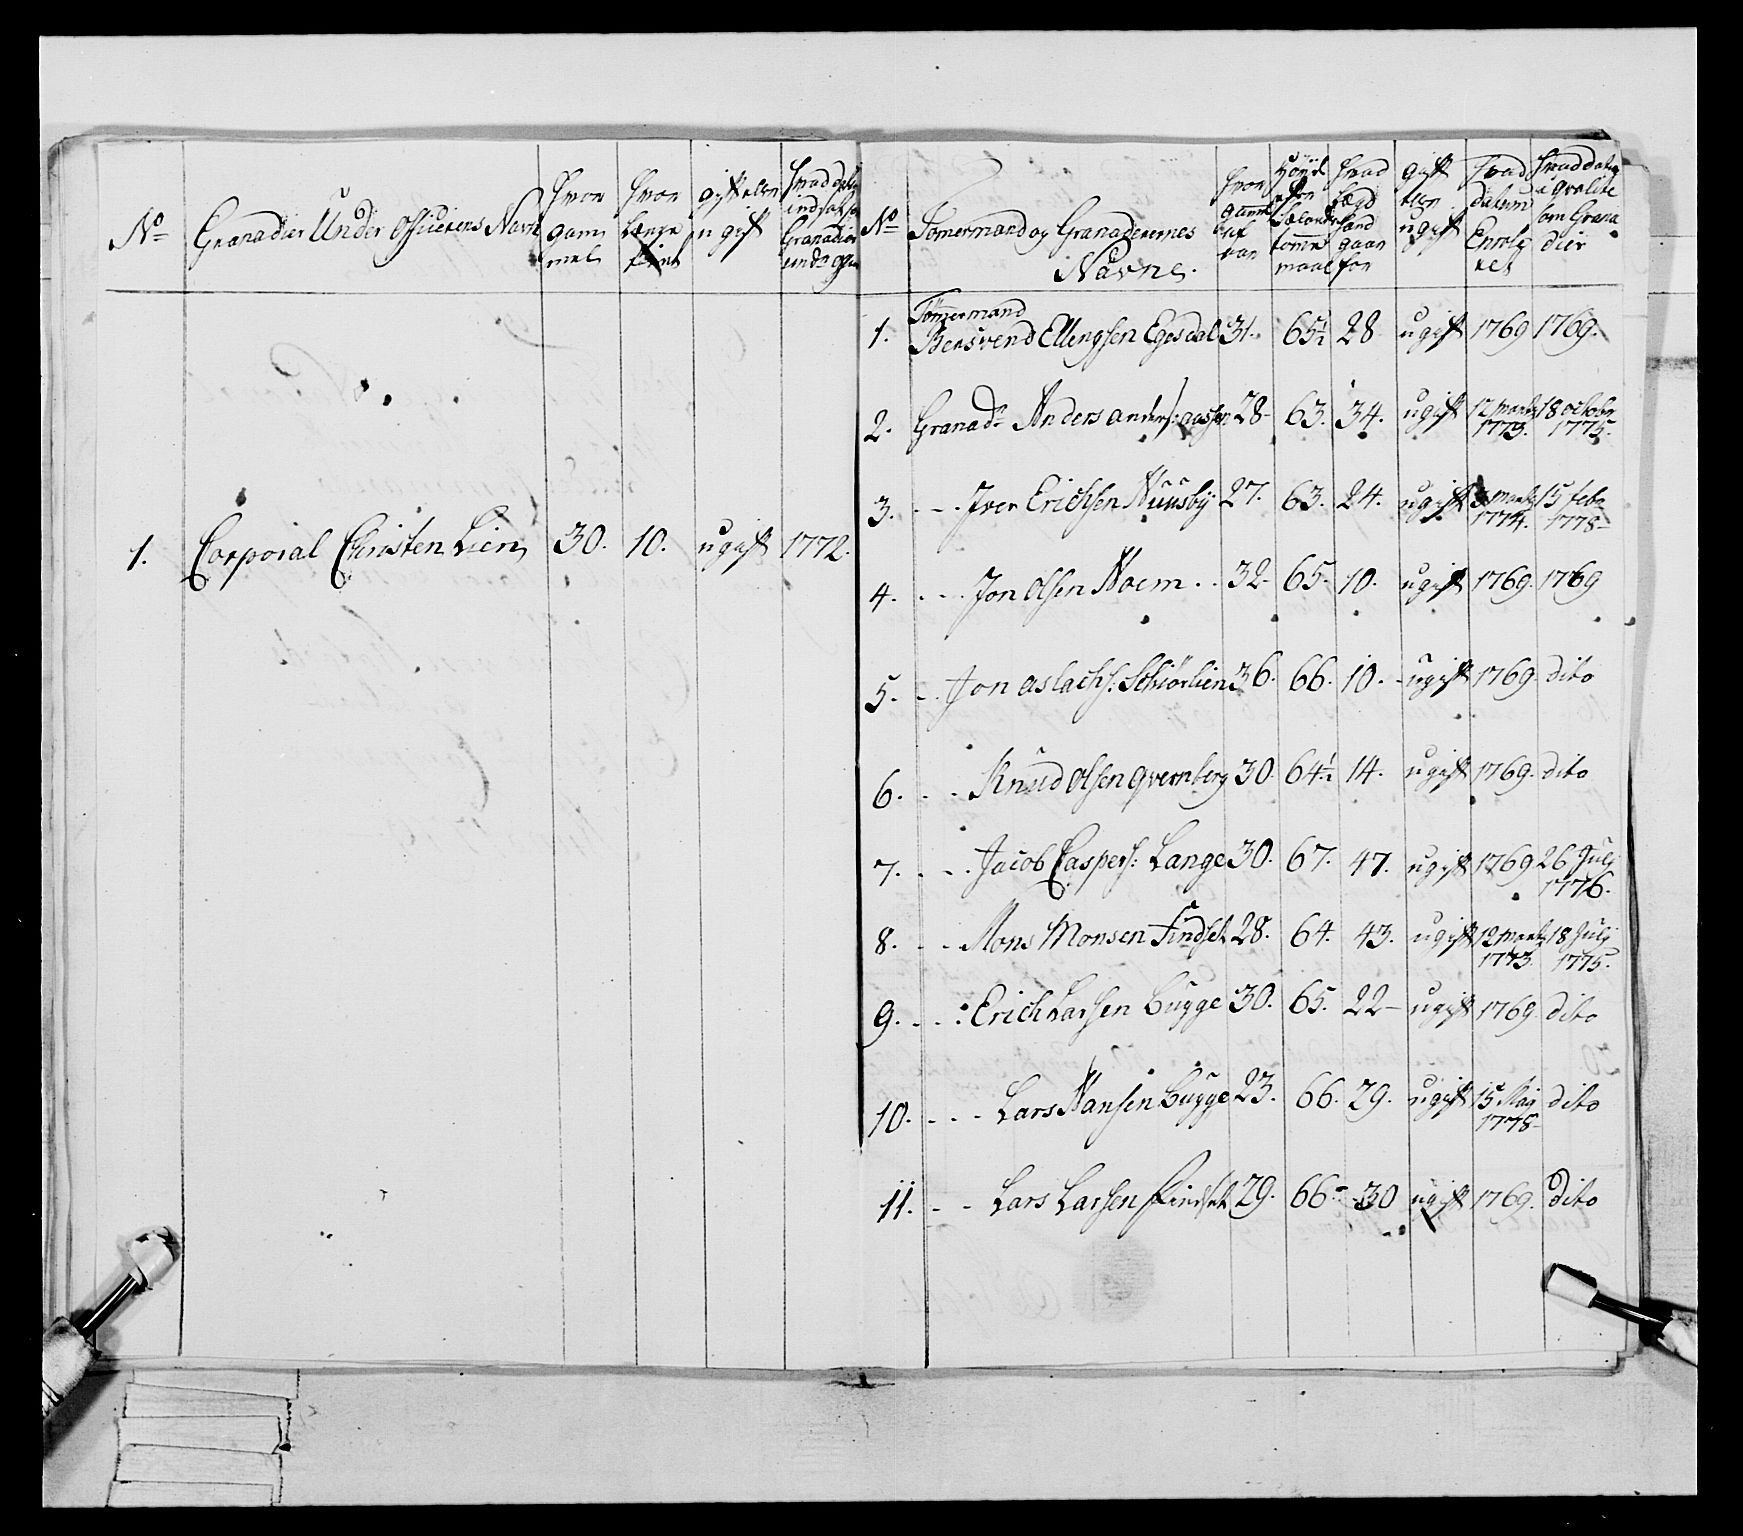 No
Granadier Under Officierens Navn
Hvor
gam
mel
Hvor
Længe
tient
gift eller
u gift
Hvad datum
indsat som
Granadier
under offi
1.
Corporal Christen Lien
30.
10.
ugift
1772.
No
Tømermand og Granaderernes
Navne.
Hvor
gammel
af
aar
Høyde
efter
Sælands
tomme
maal
Hvad
Lægd
Hand
gaar
for
gift
eller
ugift
Hvad
datum
Enroly
ret
Hvad datum
a qvalite
som Grana
dier
Tømermand
1. Bersvend Ellengsen Egesdal 31. 65½ 28 ugift 1769 1769.
2. Granadr Anders anders: aassen 28 63. 34. ugift 12 Martz 1773. 18 octobr 1775.
3. - - Iver Erichsen Nuusby 27. 63. 24. ugift Martz 1774. 15 febr 1778
4. - - Jon Olsen Moem - - 32 65 10. ugift 1769. 1769
5. - - Jon aslachs: Schiørlien 36. 66. 10. - ugift 1769. dito
6. - - Knud Olsen qvernberg 30. 64½ 14. ugift 1769. dito
7. - - Jacob Caspers: Lange 30. 67. 47. ugift 1769 26 Julj 1776.
8. - - Mons Monsen Findset 28. 64. 43. ugift 12 Martz 1773. 18 Julj 1775.
9. - - Erich Larsen Bugge 30. 65. 22 ugift 1769. dito
10. - - - Lars Hansen Bugge 23. 66. 29. ugift 15 Maj 1778 dito
11. - - Lars Larsen Findset 29. 66 30 ugift 1769. Dito